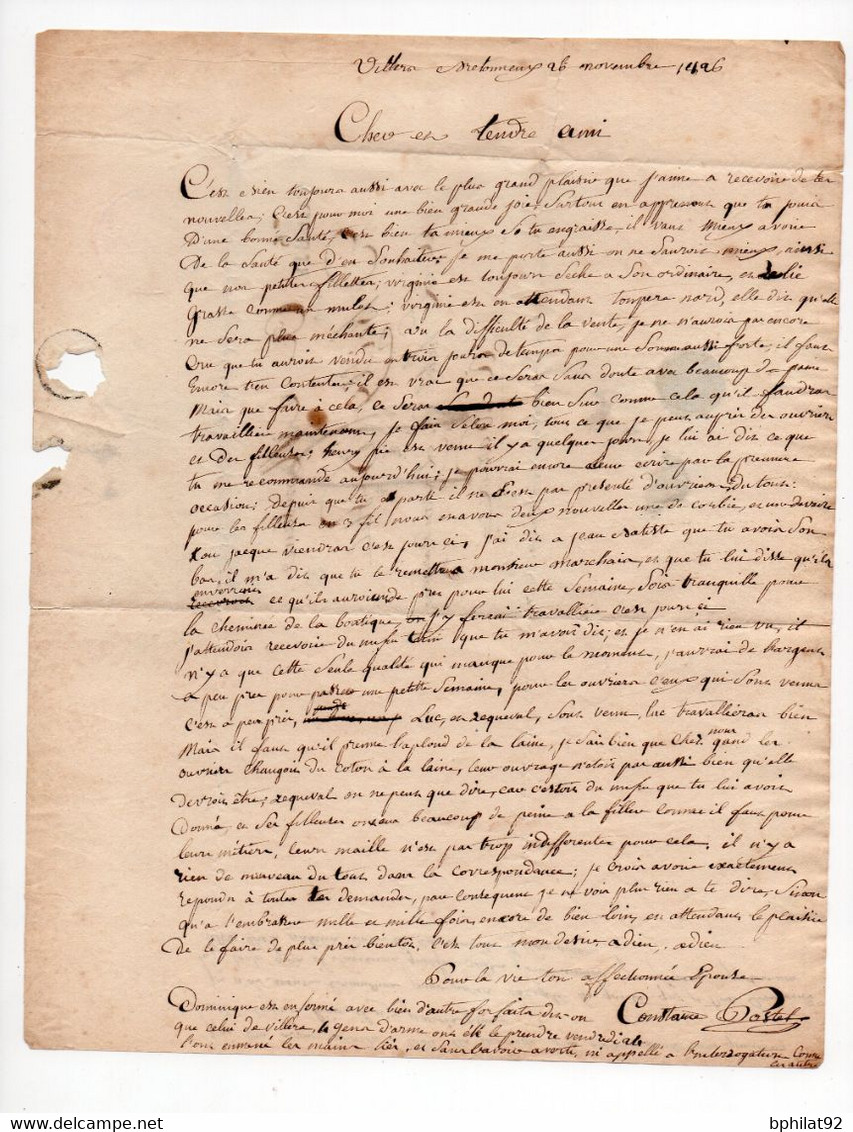 Villers Bretonneux 26 novembre 1826
Cher et tendre ami
C'est bien toujours aussi avec le plus grand plaisir que j'aime a recevoire de tes
nouvelles; c'est pour moi une bien grande joie surtout en apprenant que tu jouis
D'une bonne Santé, c'est bien ta mieux si tu engraisse, il vaut mieux avoir
De la Santé que d'en souhaiter je me porte aussi on ne sauroit mieux, ainsi
que nos petites fillettes; virginie est toujours seche a son ordinaire, et
grasse comme un mulot; virginie est en attendant nord, elle dit qu'elle
ne Sera plus méchante; vu la difficulté de la vente, je ne n'aurois pas encore
Cru que tu aurois vendu en trois jours de temps pour une Somme aussi forte, il faut
Encore t'en Contenter; il est vrai que ce Seras Sans doute avec beaucoup de peine
Mais que faire à cela, ce Seras bien Sure comme cela qu'il faudras
travaillier maintenant, je fais Selon moi, tous ce que je peut aupres des ouvriers
et Des filleuses; henry pie est venu il y a quelques jours, je lui ai dit ce que
tu me recommande aujourd'hui; je pourrai encore lecrire par la premiere
occasion; depuis que tu a parti il ne s'est pas presenté d'ouvriers du tous:
pour les filleuses en 3 fil nous en avons deux nouvelles une de corbie, et une
jacque viendras c'est jours ci, j'ai dit a jean Batiste que tu avois Son
bas, il m'a dit que tu le remettra a monsieur marchais, et que tu lui disse qu'ils
enverront ce qu'ils pres pour lui cette Semaine, Sois tranquille pour
la cheminée de la boutique, j'y ferai travaillier c'est jours ci
j'attendois recevoire du que tu m'avois dit; et je n'en ai rien vu, il
n'y a que cette Seule qualité qui manque pour le moment, j'aurai de l'argent
a peu pres pour passer une petite Semaine, pour les ouvriers ceux qui Sont venus
c'est a peu près, Luc, et requeval, Sont venu, luc travallieras bien
Mais il faut qu'il prenne l'aplond de la laine, je Sais bien que chez nous quand les
ouvriers changois du coton à la laine, leur ouvrage n'etois pas aussi bien qu'elle
devrois être; requeval on ne peut que dire, car c'etois du que tu lui avois
Donné, et Ses filleuses ont eu beaucoup de peine a la filler comme il faut pour
leurs métiers, leurs maille n'est pas trop indifferente pour cela, il n'y a
rien de nouveau du tous dans la correspondance; je Crois avoir exactement
repondu à toutes tes demandes, par consequent je ne vois plus rien a te dire, Sinon
qu'a t'embrasser mille et mille fois, encore de bien loin, en attendant le plaisir
De le faire de plus près bientôt. C'est tout mon desir adieu, adieu
Pour la vie ton affectionnée Epouse
Constance Postel
Dominique est enfermé avec bien d'autre forfaits dit-on
que celui de villers, le gens d'arme ont été le prendre vendredi
l'ont emmené les mains lier, et Sans l'avoir avertit, ni appellé a l'interrogature Comme
les autre
bphilat92